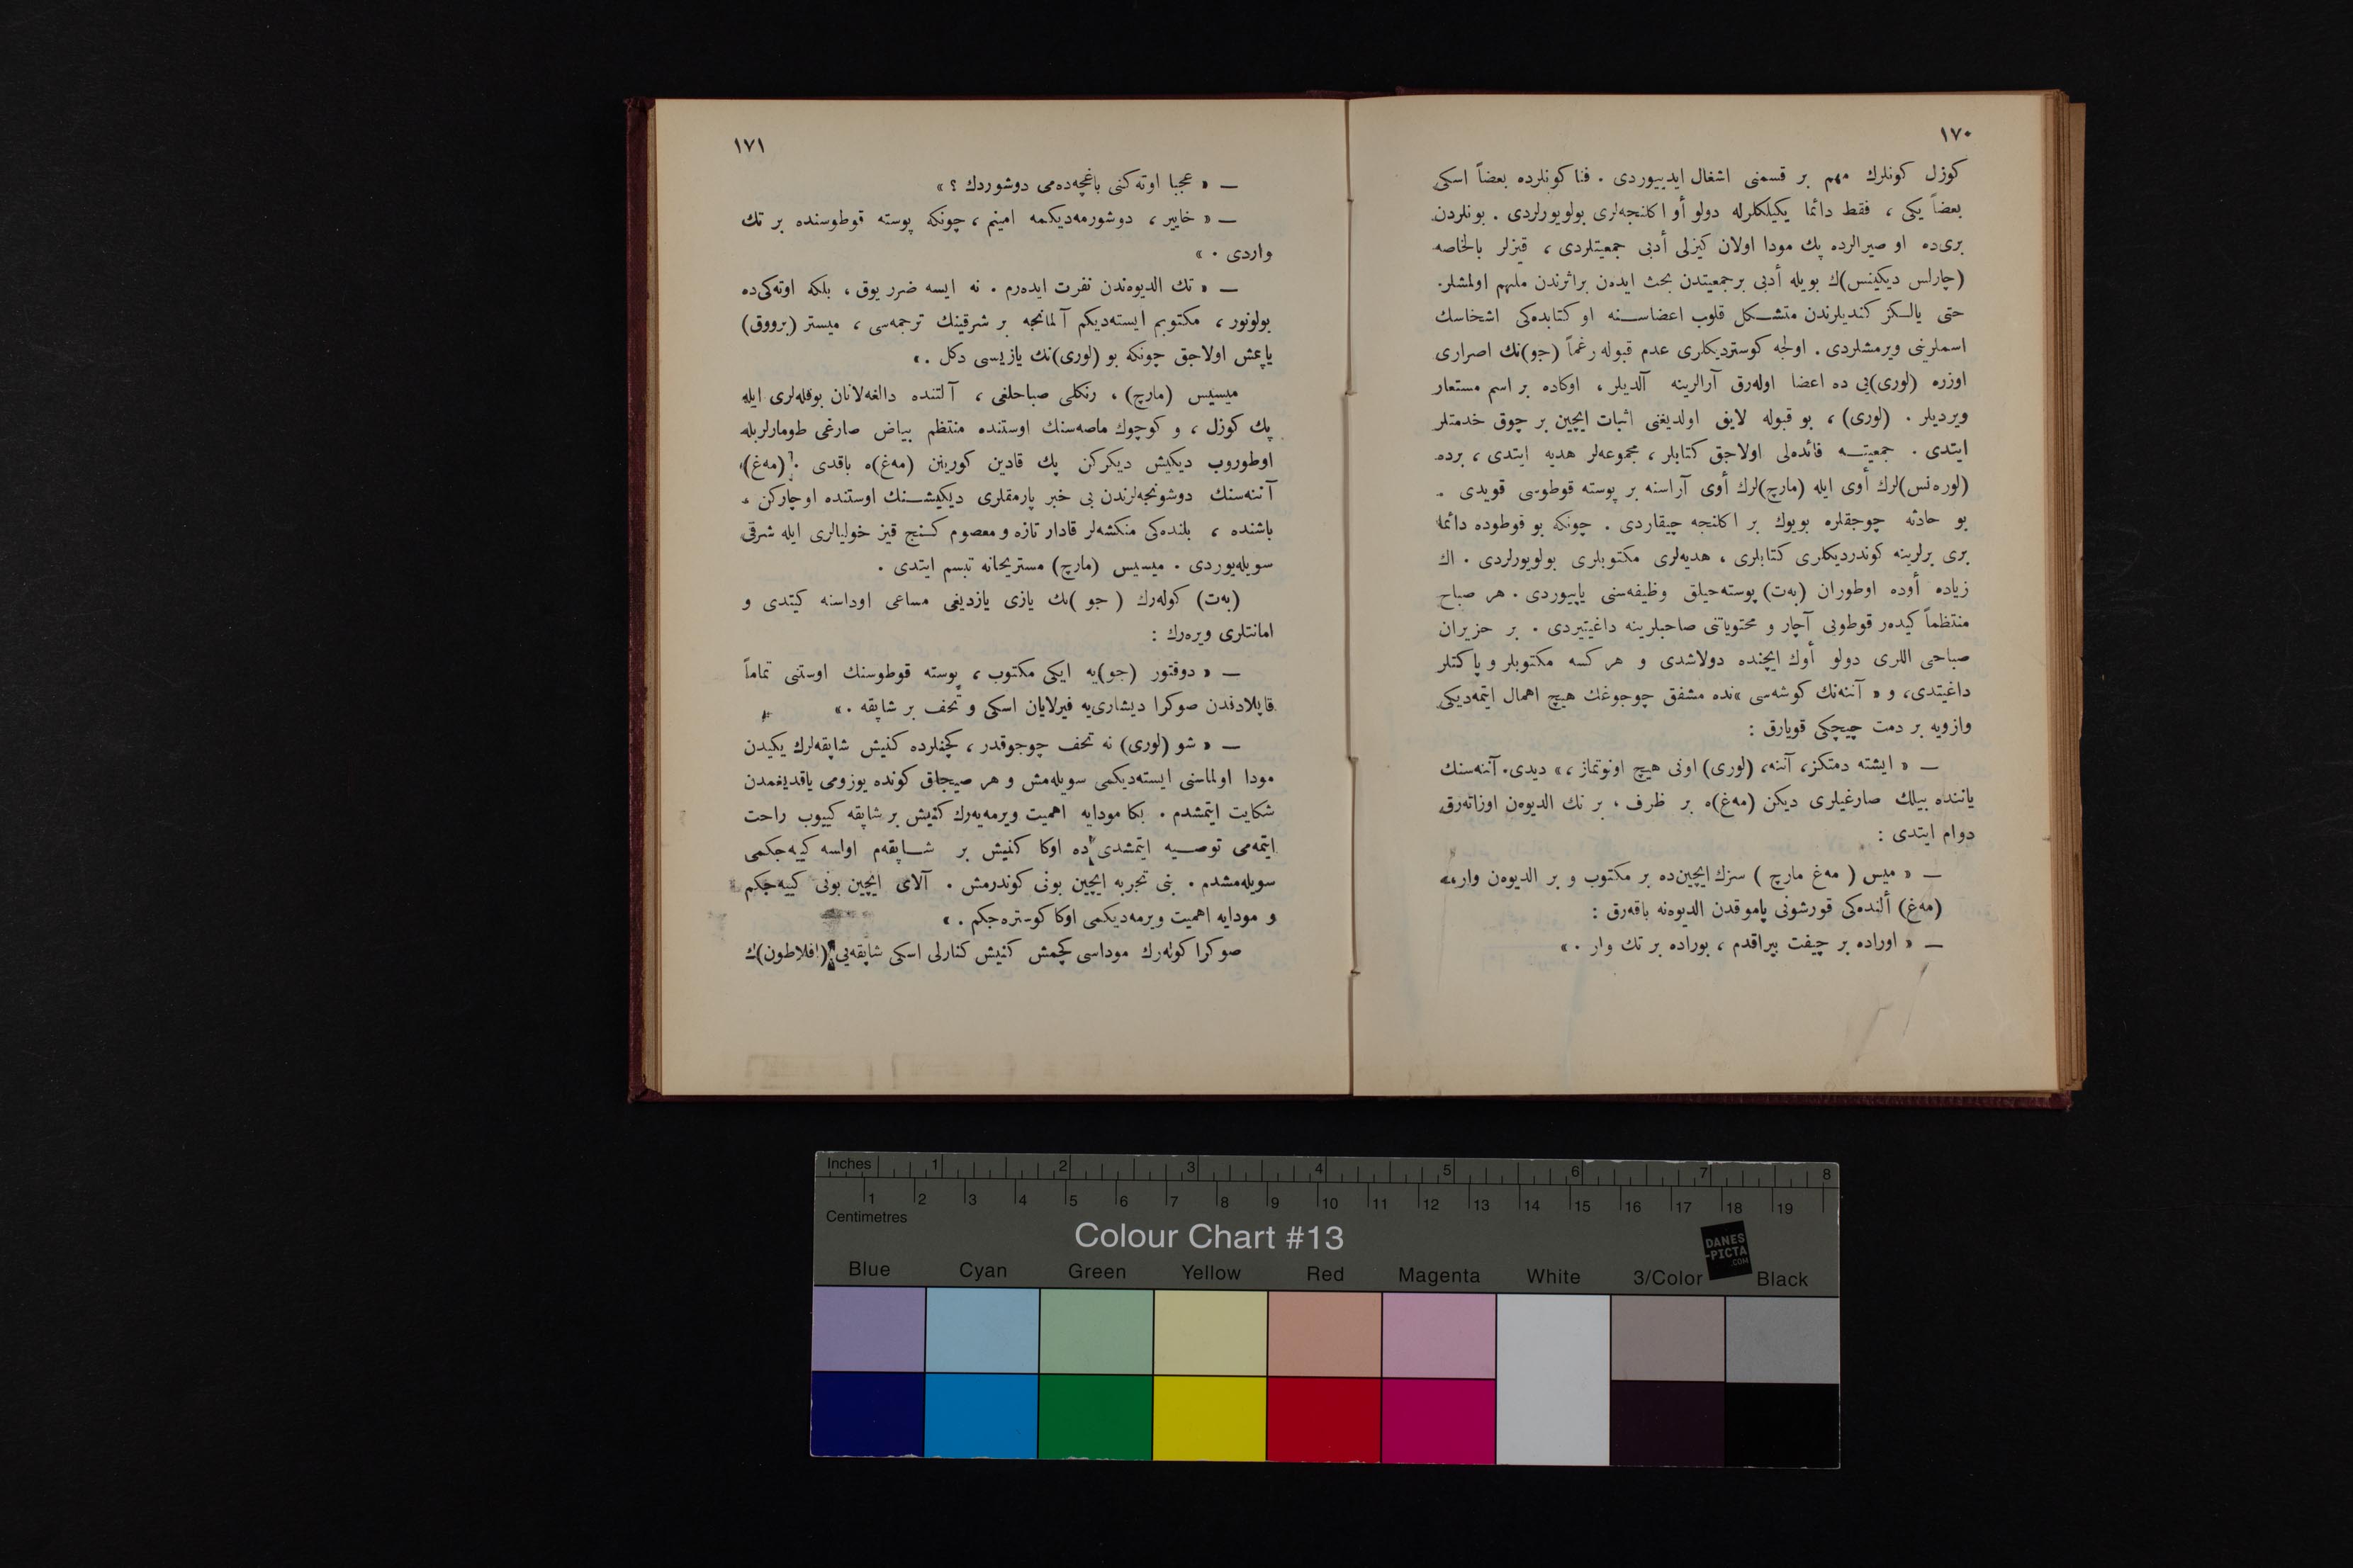 ١٧٠
كوزل كونلرك مهم بر قسمنى اشغال ايدييوردى . فنا كونلرده بعضاً اسكى
بعضاً يكى ، فقط دائما يكيلكلرله دولو أو اكلنجه‌لرى بولويورلردى . بونلردن
برى‌ده او صيرالرده پك مودا اولان كيزلى أدبى جمعيتلردى ، قيزلر بالخاصه
(چارلس ديكينس)ك بويله أدبى برجمعيتدن بحث ايدن براثرندن ملهم اولمشلر.
حتى يالكز كنديلرندن متشكل قلوب اعضاسنه او كتابده‌كى اشخاسك
اسملرينى ويرمشلردى . اولجه كوستردیكلرى عدم قبوله رغماً (جو)نك اصرارى
اوزره (لورى)يى ده اعضا اوله‌رق آرالرينه آلديلر ، اوكاده بر اسم مستعار
ويرديلر . (لورى) ، بو قبوله لايق اولديغنى اثبات ايچين بر چوق خدمتلر
ايتدى . جمعيته فائده‌لى اولاجق كتابلر ، مجموعه‌لر هديه ايتدى ، برده
(لوره‌نس)لرك أوى ايله (مارچ)لرك أوى آراسنه بر پوسته قوطوسى قويدى .
بو حادثه چوجقلره بويوك بر اكلنجه چيقاردى . چونكه بو قوطوده دائما
برى برلرينه كوندردیكلرى كتابلرى ، هديه‌لرى مكتوبلرى بولويورلردى . اك
زياده أوده اوطوران (به‌ت) پوسته‌جيلق وظيفه‌سنى ياپيوردى . هر صباح
منتظماً كيده‌ر قوطويى آچار و محتوياتنى صاحبلرينه داغيتيردى . بر حزيران
صباحى اللرى دولو أوك ايچنده دولاشدى و هر كسه مكتوبلر و پاكتلر
داغيتدى، و « آننه‌نك كوشه‌سى »نده مشفق چوجوغك هيچ اهمال ايتمه‌ديكى
وازويه بر دمت چيچكى قويارق :
— « ايشته دمتكز، آننه، (لورى) اونى هيچ اونوتماز ،» ديدى. آننه‌سنك
ياننده بيلك صارغيلرى ديكن (مه‌غ)ه بر ظرف ، بر تك الديوه‌ن اوزاته‌رق
دوام ايتدى :
— « ميس ( مه‌غ مارچ ) سزك ايچين‌ده بر مكتوب و بر الديوه‌ن وار،»
(مه‌غ) ألنده‌كى قورشونى پاموقدن الديوه‌نه باقه‌رق :
— « اوراده بر چيفت بيراقدم ، بوراده بر تك وار . »
١٧١
— « عجبا اوته‌كنى باغچه‌ده‌مى دوشوردك ؟ »
— « خايير ، دوشورمه‌ديكمه امينم ، چونكه پوسته قوطوسنده بر تك
واردى . »
— « تك الديوه‌ندن نفرت ايده‌رم . نه ايسه ضرر يوق ، بلكه اوته‌كى‌ده
بولونور ، مكتوبم ايسته‌ديكم آلمانجه بر شرقينك ترجمه‌سى ، ميستر (برووق)
ياپمش اولاجق چونكه بو (لورى)نك يازيسى دكل .»
ميسيس (مارچ) ، رنكلى صباحلغى ، آلتنده دالغه‌لانان بوقله‌لرى ايله
پك كوزل ، و كوچوك ماصه‌سنك اوستنده منتظم بياض صارغى طومارلريله
اوطوروب ديكيش ديكركن پك قادين كورينن (مه‌غ)ه باقدى . (مه‌غ)،
آننه‌سنك دوشونجه‌لرندن بى خبر پارمقلرى ديكيشنك اوستنده اوچاركن ،
باشنده ، بلنده‌كى منكشه‌لر قادار تازه و معصوم كنج قيز خوليالرى ايله شرقى
سويله‌يوردى . ميسيس (مارچ) مستريحانه تبسم ايتدى .
(به‌ت) كوله‌رك ( جو )نك يازى يازديغى مساعى اوداسنه كيتدى و
امانتلرى ويره‌رك :
— « دوقتور (جو)يه ايكى مكتوب ، پوسته قوطوسنك اوستنى تماماً
قاپلادقدن صوكرا ديشارى‌يه فيرلايان اسكى و تحف بر شاپقه .»
— « شو (لورى) نه تحف چوجوقدر ، كچنلرده كنيش شاپقه‌لرك يكيدن
مودا اولماسنى ايسته‌ديكمى سويله‌مش و هر صيجاق كونده يوزومى ياقديغمدن
شكايت ايتمشدم . بكا مودايه اهميت ويرمه‌يه‌رك كنيش بر شاپقه كييوب راحت
ايتمه‌مى توصيه ايتمشدى ده اوكا كنيش بر شاپقه‌م اولسه كيه‌جكمى
سويله‌مشدم . بنى تجربه ايچين بونى كوندرمش . آلاى ايچين بونى كييه‌جكم
و مودايه اهميت ويرمه‌ديكمى اوكا كوستره‌جكم . »
صوكرا كوله‌رك موداسى كچمش كنيش كنارلى اسكى شاپقه‌يى (افلاطون)ك
Inches 1 2 3 4 5 6 7 8
1 2 3 4 5 6 7 8 9 10 11 12 13 14 15 16 17 18 19
Centimetres
Colour Chart #13
DANES
-PICTA
.COM
Blue Cyan Green Yellow Red Magenta White 3/Color Black